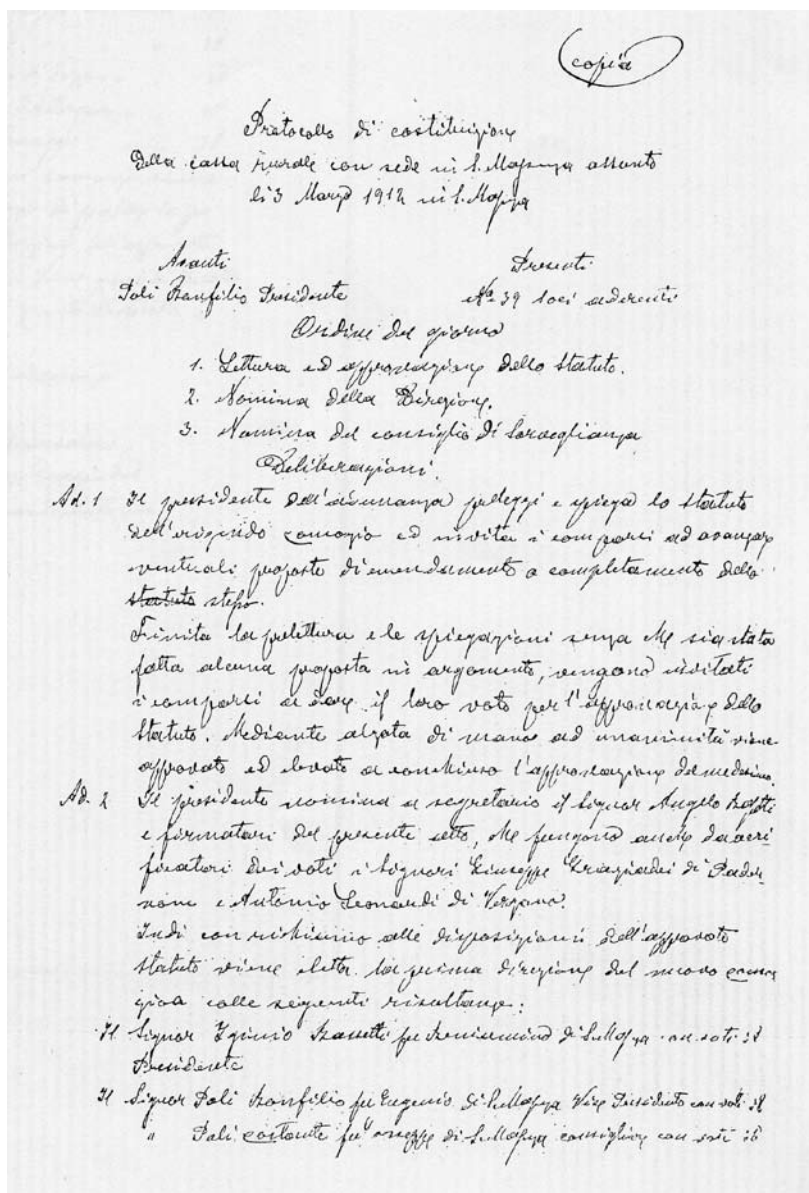 copia
Protocollo di costituzione
della cassa rurale con sede in S. Massenza assunto
li 3 Marzo 1912 in S. Massenza
Avanti
Presenti
Poli Bonfilio Presidente
No 39 soci aderenti
Ordine del giorno
1. Lettura ed approvazione dello statuto.
2. Nomina della Direzione.
3. Nomina del consiglio di Sorveglianza
Deliberazioni.
Ad. 1 Il presidente dell'adunanza prelegge e spiega lo statuto
dell'erigendo consorzio ed invita i comparsi ad avanzare
eventuali proposte di emendamento o completamento dello
statuto stesso.
Finita la prelettura e le spiegazioni senza che sia stata
fatta alcuna proposta in argomento, vengono invitati
i comparsi a dare il loro voto per l'approvazione dello
Statuto. Mediante alzata di mano ad unanimità viene
approvato ed elevato a conchiuso l'approvazione del medesimo.
Ad. 2 Il presidente nomina a segretario il Signor Angelo
e firmatari del presente atto, che fungono anche da veri-
ficatori dei voti i Signori Giuseppe Graziadei di Pader-
none e Antonio Leonardi di Vezzano.
Indi con richiamo alle disposizioni dell'approvato
statuto viene eletta la prima direzione del nuovo
colle seguenti risultanze:
Il Signor Iginio Bassetti fu Beniamino di S. Massenza con voti
Presidente
Il Signor Poli Bonfilio fu Eugenio di S. Massenza Vice Presidente con voti
" Poli Costante fu di S. Massenza consigliere con voti